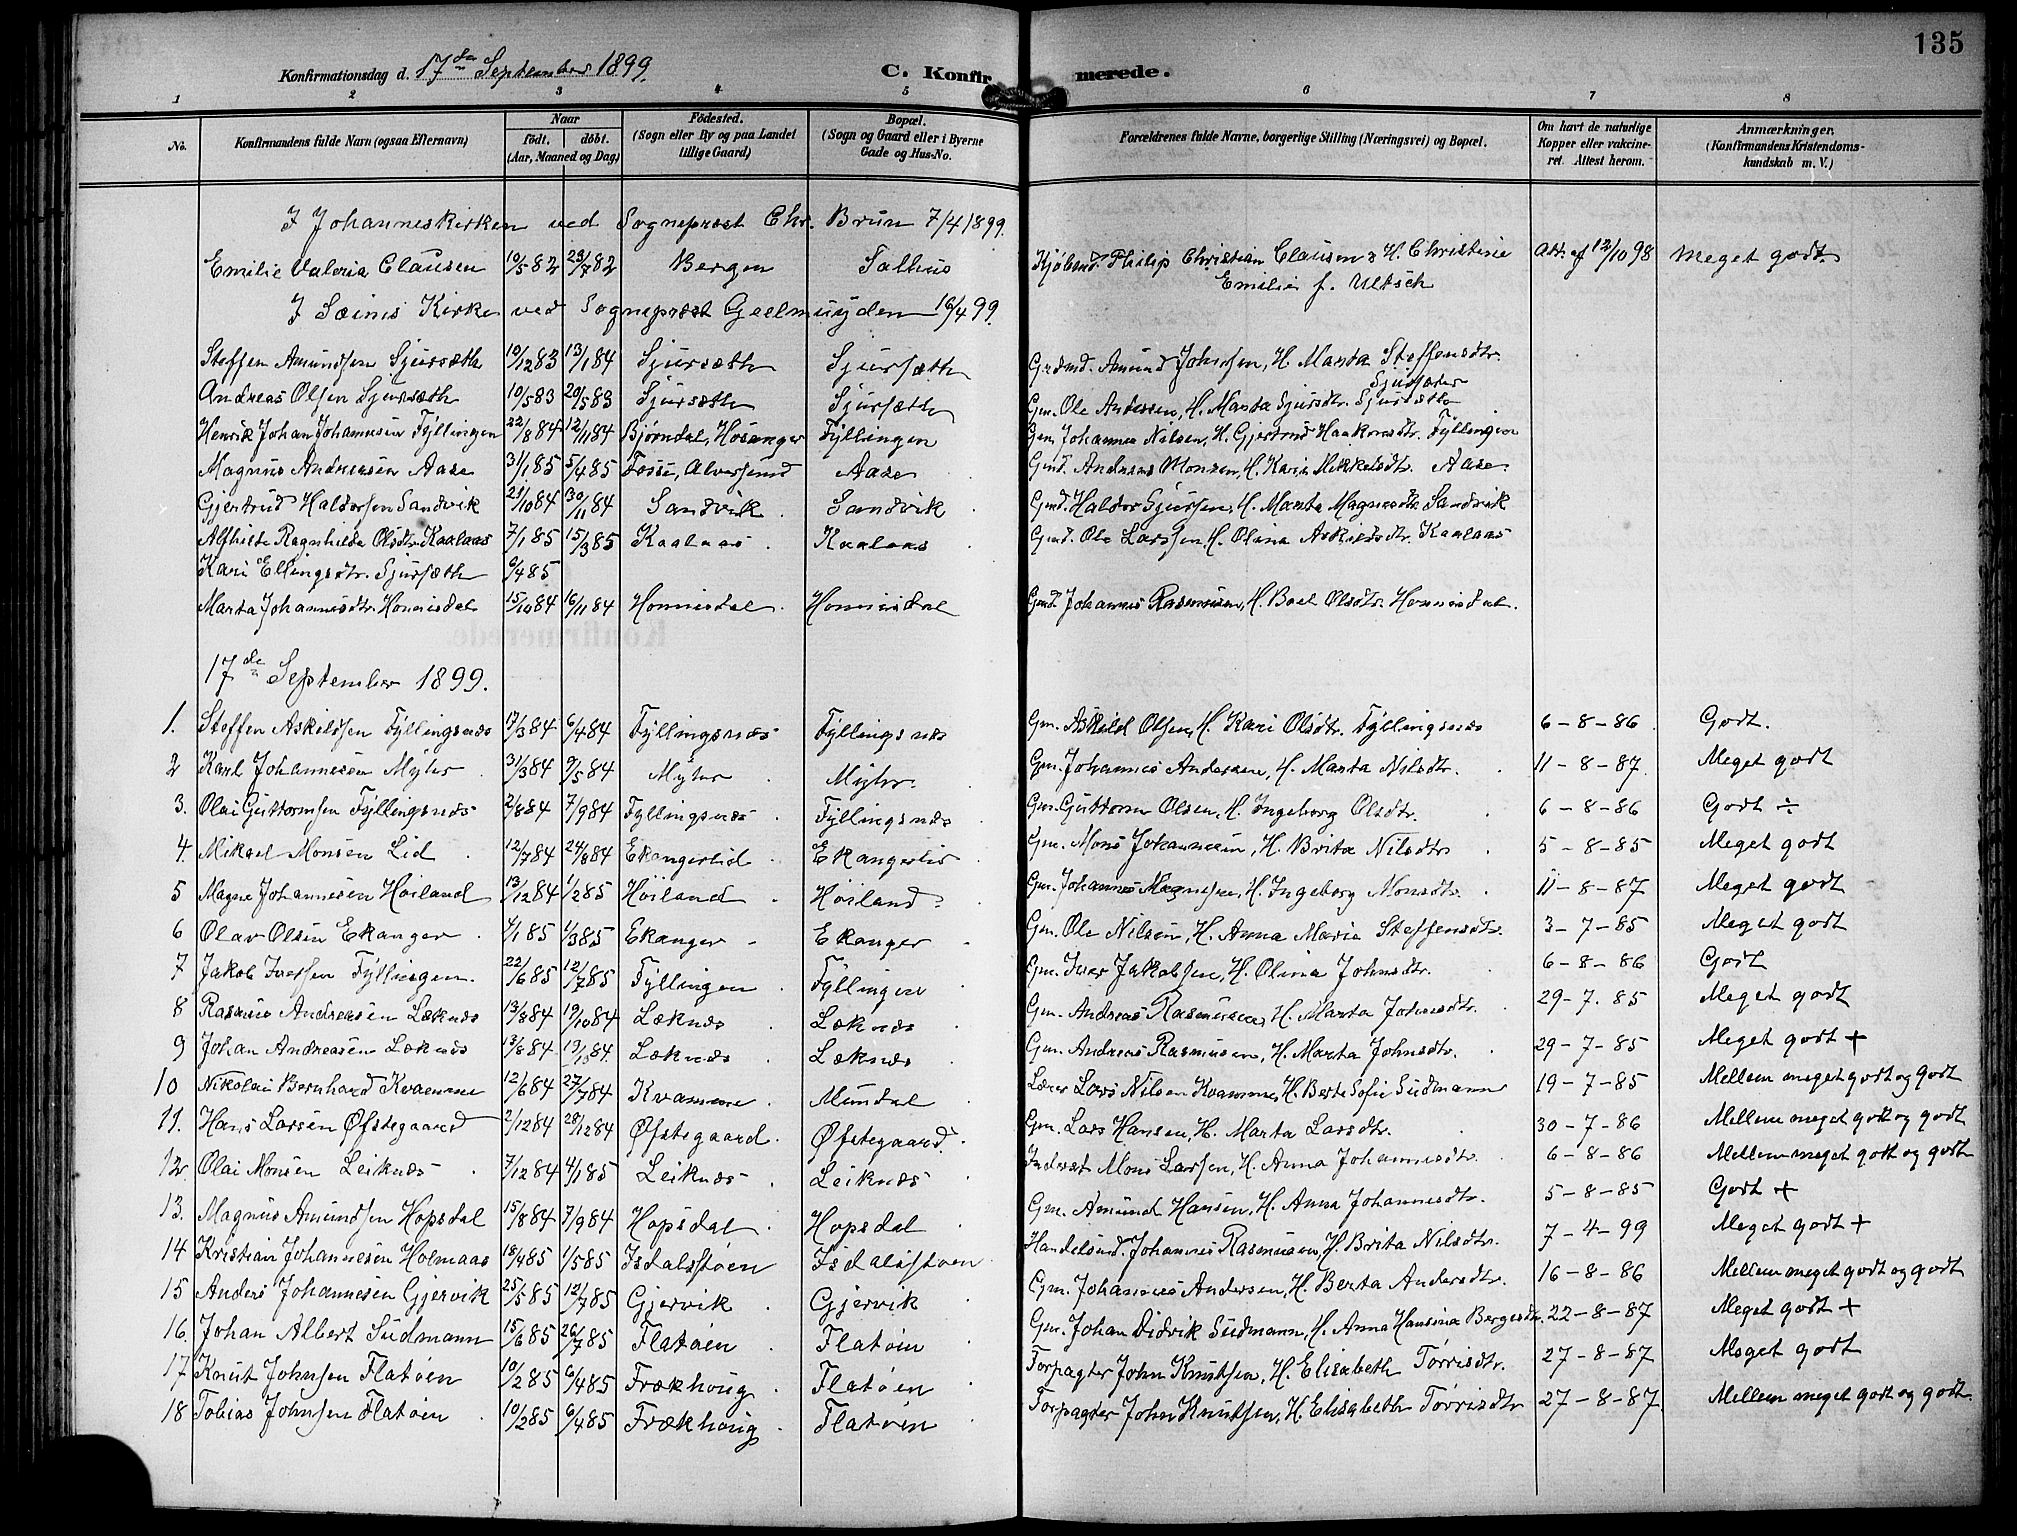 135
Konfirmationsdag d. 17de September 1899. C. Konfirmerede.
1 2 3 4 5 6 7 8
No. Konfirmandens fulde Navn (ogsaa Efternavn) Naar født. døbt. (Aar, Maaned og Dag) Fødested. (Sogn eller By og paa Landet tillige Gaard) Bopæl. (Sogn og Gaard eller i Byerne Gade og Hus-No. Forældrenes fulde Navne, borgerlige Stilling (Næringsvei) og Bopæl. Om havt de naturlige Kopper eller vakcineret. Attest herom. Anmærkninger. (Konfirmandens Kristendomskundskab m. V.)
I Johanneskirken ved Sognepræst Chr. Brun 7/4 1899.
Emilie Valeria Clausen 10/5 82 23/7 82 Bergen Salhus Kjøbmd. Philip Christian Clausen & H. Christine Emilie f. Ultsch Att. af 12/10 98 Meget godt.
I Sæims Kirke ved Sognepræst Geelmuyden 16/4 99.
Steffen Amundsen Sjursæth 10/12 83 13/1 84 Sjursæth Sjursæth Grdmd. Amund Johnsen, H. Marta Steffensdtr. Sjursæter
Andreas Olsen Sjursæth 10/5 83 20/5 83 Sjursæth Sjursæth Gm. Ole Andersen, H. Marta Sjursdtr. Sjursæth
Henrik Johan Johannesen Fyllingen 22/8 84 12/11 84 Bjørndal, Hosanger Fyllingen Gm. Johannes Nilsen, H. Gjertrud Haakonsdtr. Fyllingen
Magnus Andreasen Aase 31/1 85 5/4 85 Fosse, Alversund Aase Gmd. Andreas Monsen, H. Kari Mikkelsdtr. Aase
Gjertrud Haldorsen Sandvik 21/10 84 30/11 84 Sandvik Sandvik Gmd. Haldor Sjursen, H. Marta Magnesdtr. Sandvik
Alfhilde Ragnhilda Olsdtr. Kaalaas 7/1 85 15/3 85 Kaalaas Kaalaas Gmd. Ole Larssen, H. Olina Askildsdtr. Kaalaas
Kari Ellingsdtr. Sjursæth 6/4 85
Marta Johannesdtr. Honnisdal 15/10 84 16/11 84 Honnisdal Honnisdal Gmd. Johannes Rasmussen, H. Boel Olsdtr. Honnisdal.
17de September 1899.
1. Steffen Askildsen Fyllingsnæs 17/3 84 6/4 84 Fyllingsnæs Fyllingsnæs Gm. Askild Olsen, H. Kari Olsdtr. Fyllingsnæs 6-8-86 Godt.
2 Karl Johannesen Myhr 31/3 84 9/5 84 Myhr Myhr Gm. Johannes Andersen, H. Marta Nilsdtr. 11-8-87. Meget godt
3. Olai Guttormsen Fyllingsnæs 2/8 84 7/9 84 Fyllingsnæs Fyllingsnæs Gm. Guttorm Olsen, H. Ingeborg Olsdtr. 6-8-86 Godt ÷
4. Mikael Monsen Lid 12/7 84 24/8 84 Ekangerlid Ekangerlid Gm. Mons Johannesen, H. Brita Nilsdtr 5-8-85 Meget godt
5 Magne Johannesen Høiland 13/12 84 1/2 85 Høiland Høiland Gm. Johannes Magnesen, H. Ingeborg Monsdtr. 11-8-87 Meget godt
6 Olav Olsen Ekanger 4/1 85 1/3 85 Ekanger Ekanger Gm. Ole Nilsen, H. Anna Maria Steffensdtr. 3-7-85 Meget godt
7 Jakob Iversen Fyllingen. 22/6 85 12/7 85 Fyllingen Fyllingen Gm. Iver Jakobsen, H. Olina Johnsdtr. 6-8-86 Godt
8 Rasmus Andreasen Læknæs 13/8 84 19/10 84 Læknæs Læknæs Gm. Andreas Rasmussen, H. Marta Johnsdtr. 29-7-85 Meget godt
9 Johan Andreasen Læknæs 13/8 84 19/10 84. Læknæs Læknæs Gm. Andreas Rasmussen, H. Marta Johnsdtr. 29-7-85 Meget godt +
10 Nikolai Bernhard Kvamme 12/6 84 27/7 84 Kvamme Mundal Lærer Lars Nilsen Kvamme, H. Berta Sofie Sudmann 19-7-85 Mellem meget godt og godt
11. Hans Larsen Øfstegaard 2/12 84 28/12 84 Øfstegaard Øfstegaard Gm. Lars Hansen, H. Marta Larsdtr. 30-7-86 Mellem meget godt og godt
12. Olai Monsen Leiknæs 7/12 84 4/1 85 Leiknæs Leiknæs Inderst Mons Larsen, H. Anna Johannesdtr. 6-8-86 Mellem meget godt og godt
13. Magnus Amundsen Hopsdal 15/8 84 7/9 84 Hopsdal Hopsdal Gm. Amund Hansen, H. Anna Johannesdtr. 5-8-85 Godt +
14 Kristian Johannesen Holmaas 18/4 85 1/5 85 Isdalsstøen Isdalsstøen Handelsmd. Johannes Rasmussen, H. Brita Nilsdtr. 7-4-99 Meget godt +
15 Anders Johannesen Gjervik 25/5 85 12/7 85 Gjervik Gjervik Gm. Johannes Andersen, H. Berta Andersdtr. 16-8-86 Mellem meget godt og godt
16. Johan Albert Sudmann 15/6 85 26/7 85 Flatøen Flatøen Gm. Johan Didrik Sudmann, H. Anna Hansina Bergesdtr. 22-8-87 Meget godt +
17 Knut Johnsen Flatøen 10/2 85 6/4 85 Frækhoug Flatøen Forpagter John Knutsen, H. Elisabeth Tørrisdtr. 27-8-87 Meget godt
18 Tobias Johnsen Flatøen 10/2 85 6/4 85 Frækhoug Flatøen Forpagter John Knutsen, H. Elisabeth Tørrisdtr 27-8-87. Mellem meget godt og godt.